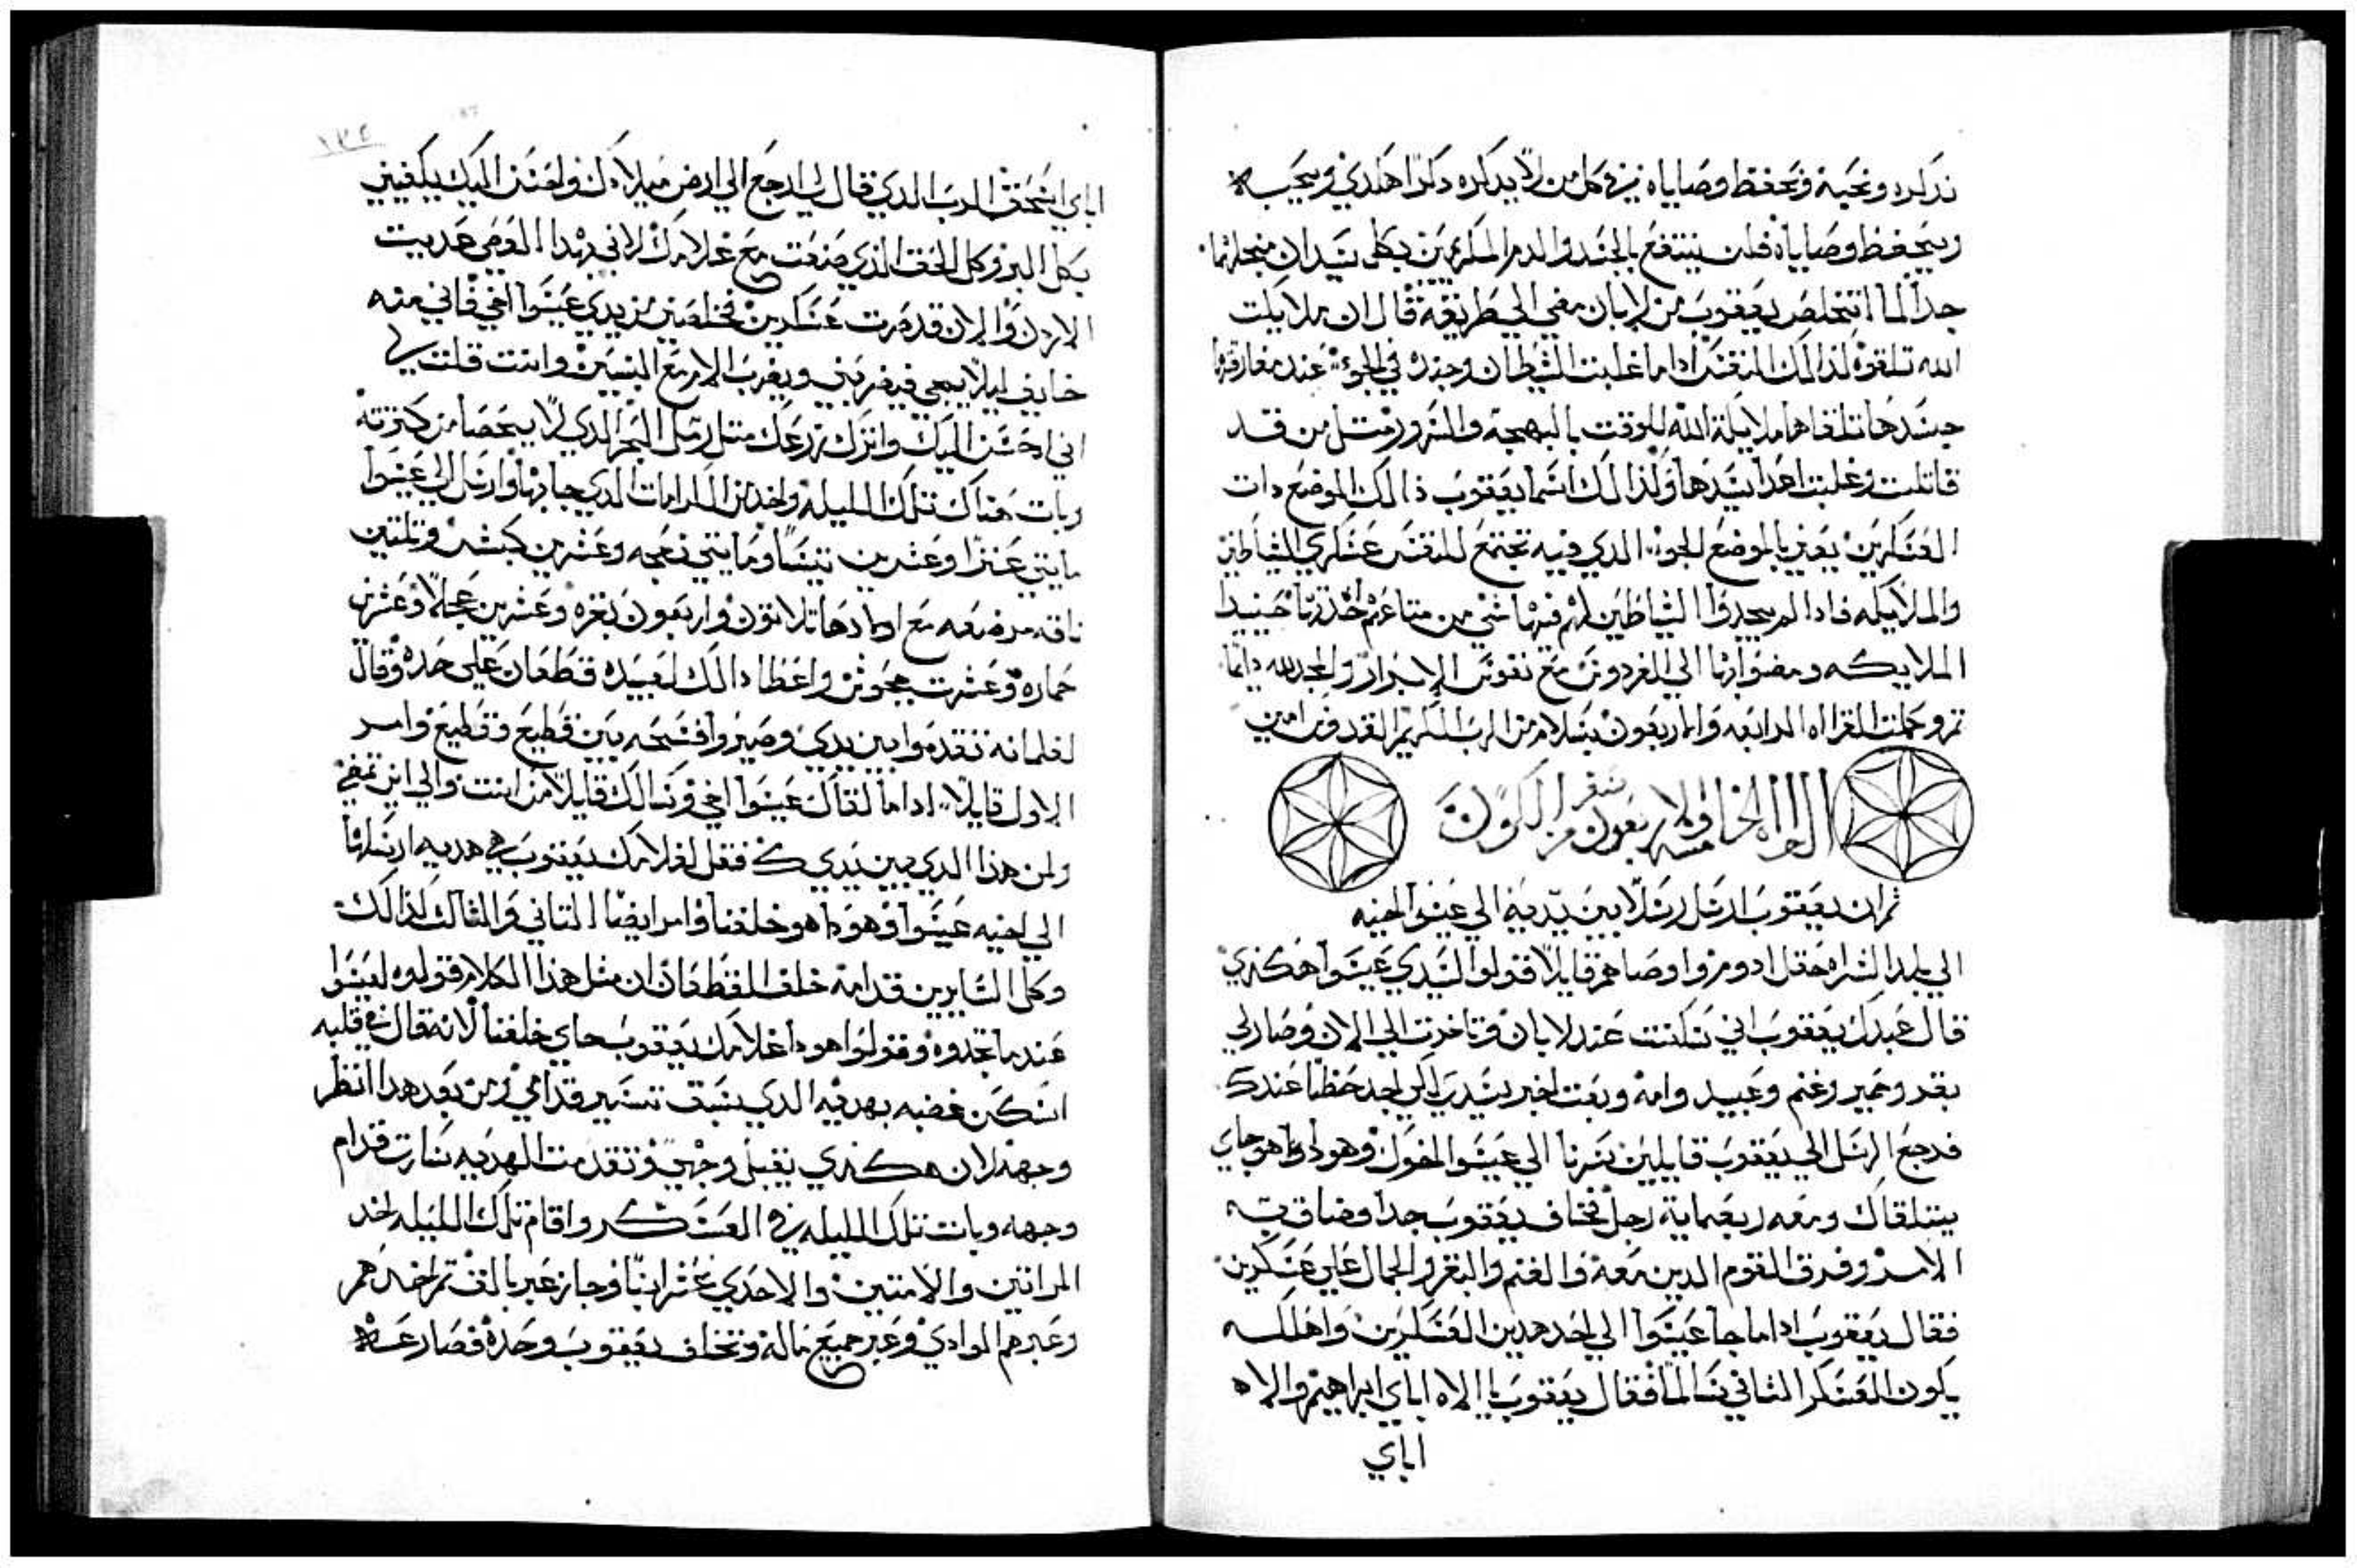 نذكره ونحبه ونحفظ وصاياه لان كل من لا يذكره ذكرا هكذي ويحبه
ويحفظ وصاياه فلن ينتفع بالجند والدم المكرمين بكل شي لان منجلهما
جدا لما اتخلص يعقوب من لابان مضي الي طريقه قال ان ملايكت
الله تلقوه لذالك النفس اداما غلبت الشيطان وجنده في الجو عند مفارقتها
جسدها تتلقاها ملايكة الله للوقت بالبهجه والسرور مثل من قد
قاتلت وغلبت اعدا سيدها ولذالك اسما يعقوب ذالك الموضع دات
العسكرين يعني بالموضع الجو الذي فيه تجتمع للنفس عسكري الشياطين
والملايكه فادا لم يجدوا الشياطين لهم فيها شي من متاعهم حينيد
الملايكه ومضوا بها الي الفردوس مع نفوس الابرار والمجد لله دايما
تم وكملت القراه الرابعه والاربعون بسلام من الرب الكريم القدوس امين
القراه الخامسه والاربعون من سفر التكوين
ثم ان يعقوب ارسل رسلا بين يديه الي عيسوا اخيه
الي بلد الشراه حقل ادوم واوصاهم قايلا قولوا لسيدي عيسوا هكذي
قال عبدك يعقوب اني سكنت عند لابان وتاخرت الي الان وصار لي
بقر وحمير وغنم وعبيد وامه وبعت اخبر سيدي لكي اجد حظا عندك
فرجع الرسل الي يعقوب قايلين سرنا الي عيسوا اخوك وهودا هو جاي
يتلقاك ومعه ربعماية رجل فخاف يعقوب جدا وضاق به
الامر وفرق القوم الدين معه والغنم والبقر والجمال علي عسكرين
فقال يعقوب اداما جا عيسوا الي احد هدين العسكرين واهلكه
يكون العسكر الثاني سالما فقال يعقوب يا الاه اباي ابراهيم والاه
اباي
اباي اسحق الرب الدي قال لي ارجع الي ارض ميلادك واحسن اليك يكفيني
بكل البر وكل الحق الذي صنعت مع غلامك لاني بهدا القومي عديت
الاردن والان قد صرت عسكرين نخلصني من يدي عيسوا اخي فاني منه
خايف ليلا يجي فيضربني ويضرب الام مع البنين وانت قلت لي
اني احسن اليك واترك زرعك متل رمل البحر الدي لا يحصا من كترته
وبات هناك تلك الليله واخد من الكرامات الدي جا بها وارسل الي عيسوا
مايتي عنزا وعشرين تيسا ومايتي نعجه وعشرين كبش وتلتين
ناقه مرضعه مع اولادها تلاتون واربعون بقره وعشرين عجلا وعشرين
حماره وعشرت جحوش واعطا دالك لعبيده قطعان علي حده وقال
لغلمانه تقدموا بين يدي وصيروا فسحه بين قطيع وقطيع وامر
الاول قايلا اداما لقاك عيسوا اخي وسالك قايلا من انت والي اين تمضي
ولمن هذا الدي بين يديك فقل لغلامك يعقوب هي هديه ارسلها
الي اخيه عيسوا وهودا هو خلفنا وامر ايضا التاني والثالث كذالك
وكل السايرين قدامه خلف القطعان ان مثل هذا الكلام قولوه لعيسوا
عندما تجدوه وقولوا هودا غلامك يعقوب جاي خلفنا لانه قال في قلبه
اسكن غضبه بهديه الدي يسبق تسير قدامي ومن بعد هدا انظر
وجهه لان هكذي يقبل وجهي وتقدمت الهديه سارت قدام
وجهه وبات تلك الليله في العسكر واقام تلك الليله اخد
المراتين والامتين والاحدي عشر ابنا وجاز عبر يابوق تم اخدهم
وعبرهم الوادي وعبر جميع ماله وتخلف يعقوب وحده فصارعه